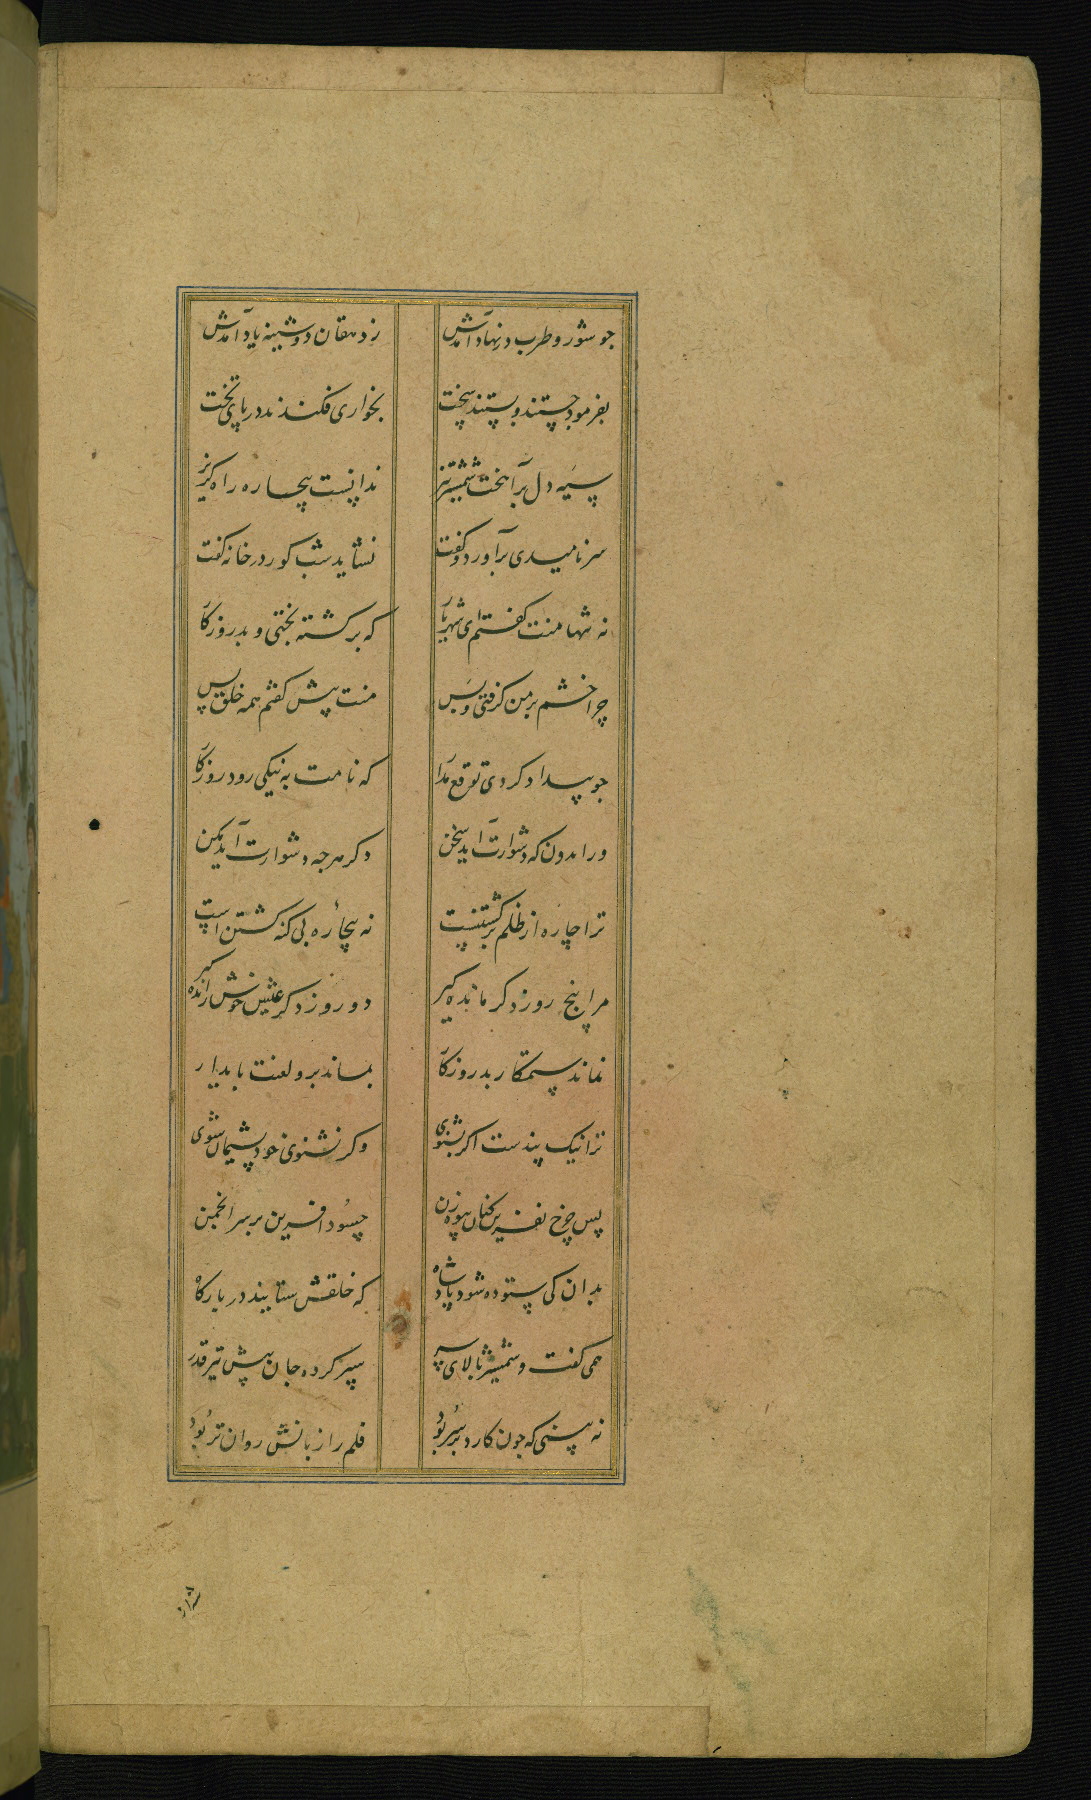 جو شور و طرب در نهاد آمدش ز دهقان دوشینه یاد آمدش
بفرمود جستند و بستند سخت بخواری فکندند در پای تخت
سیه دل برآهخت شمشیر تیز ندانست بیچاره راه کریز
سر ناامیدی برآورد و کفت نشاید شب کور در خانه کفت
نه تنها منت کفتم ای شهریار که برکشته بختی و بد روزکار
چرا خشم بر من کرفتی و بس منت پیش کفتم همه خلق پس
جو بیداد کردی توقع مدار که نامت به نیکی رود روزکار
ور ایدون که دشوارت آید سخن دکر هرجه دشوارت آید مکن
ترا چاره از ظلم برکشتنست نه بیچاره بی کنه کشتن است
مرا پنج روز دکر مانده کیر دو روز دکر عیش خوش رانده کیر
نماند ستمکار بد روزکار بماند برو لعنت پایدار
ترا نیک پندست اکر بشنوی وکر نشنوی خود پشیمان شوی
پس چرخ نفرین کنان بیوه زن چه سود آفرین بر سر انجمن
بدان کی ستوده شود پادشاه که خلقش ستایند در بارکاه
همی کفت و شمشیر بالای سر سپر کرده جان پیش تیر قدر
نه بینی که جون کارد بر سر بود قلم را زبانش روان تر بود